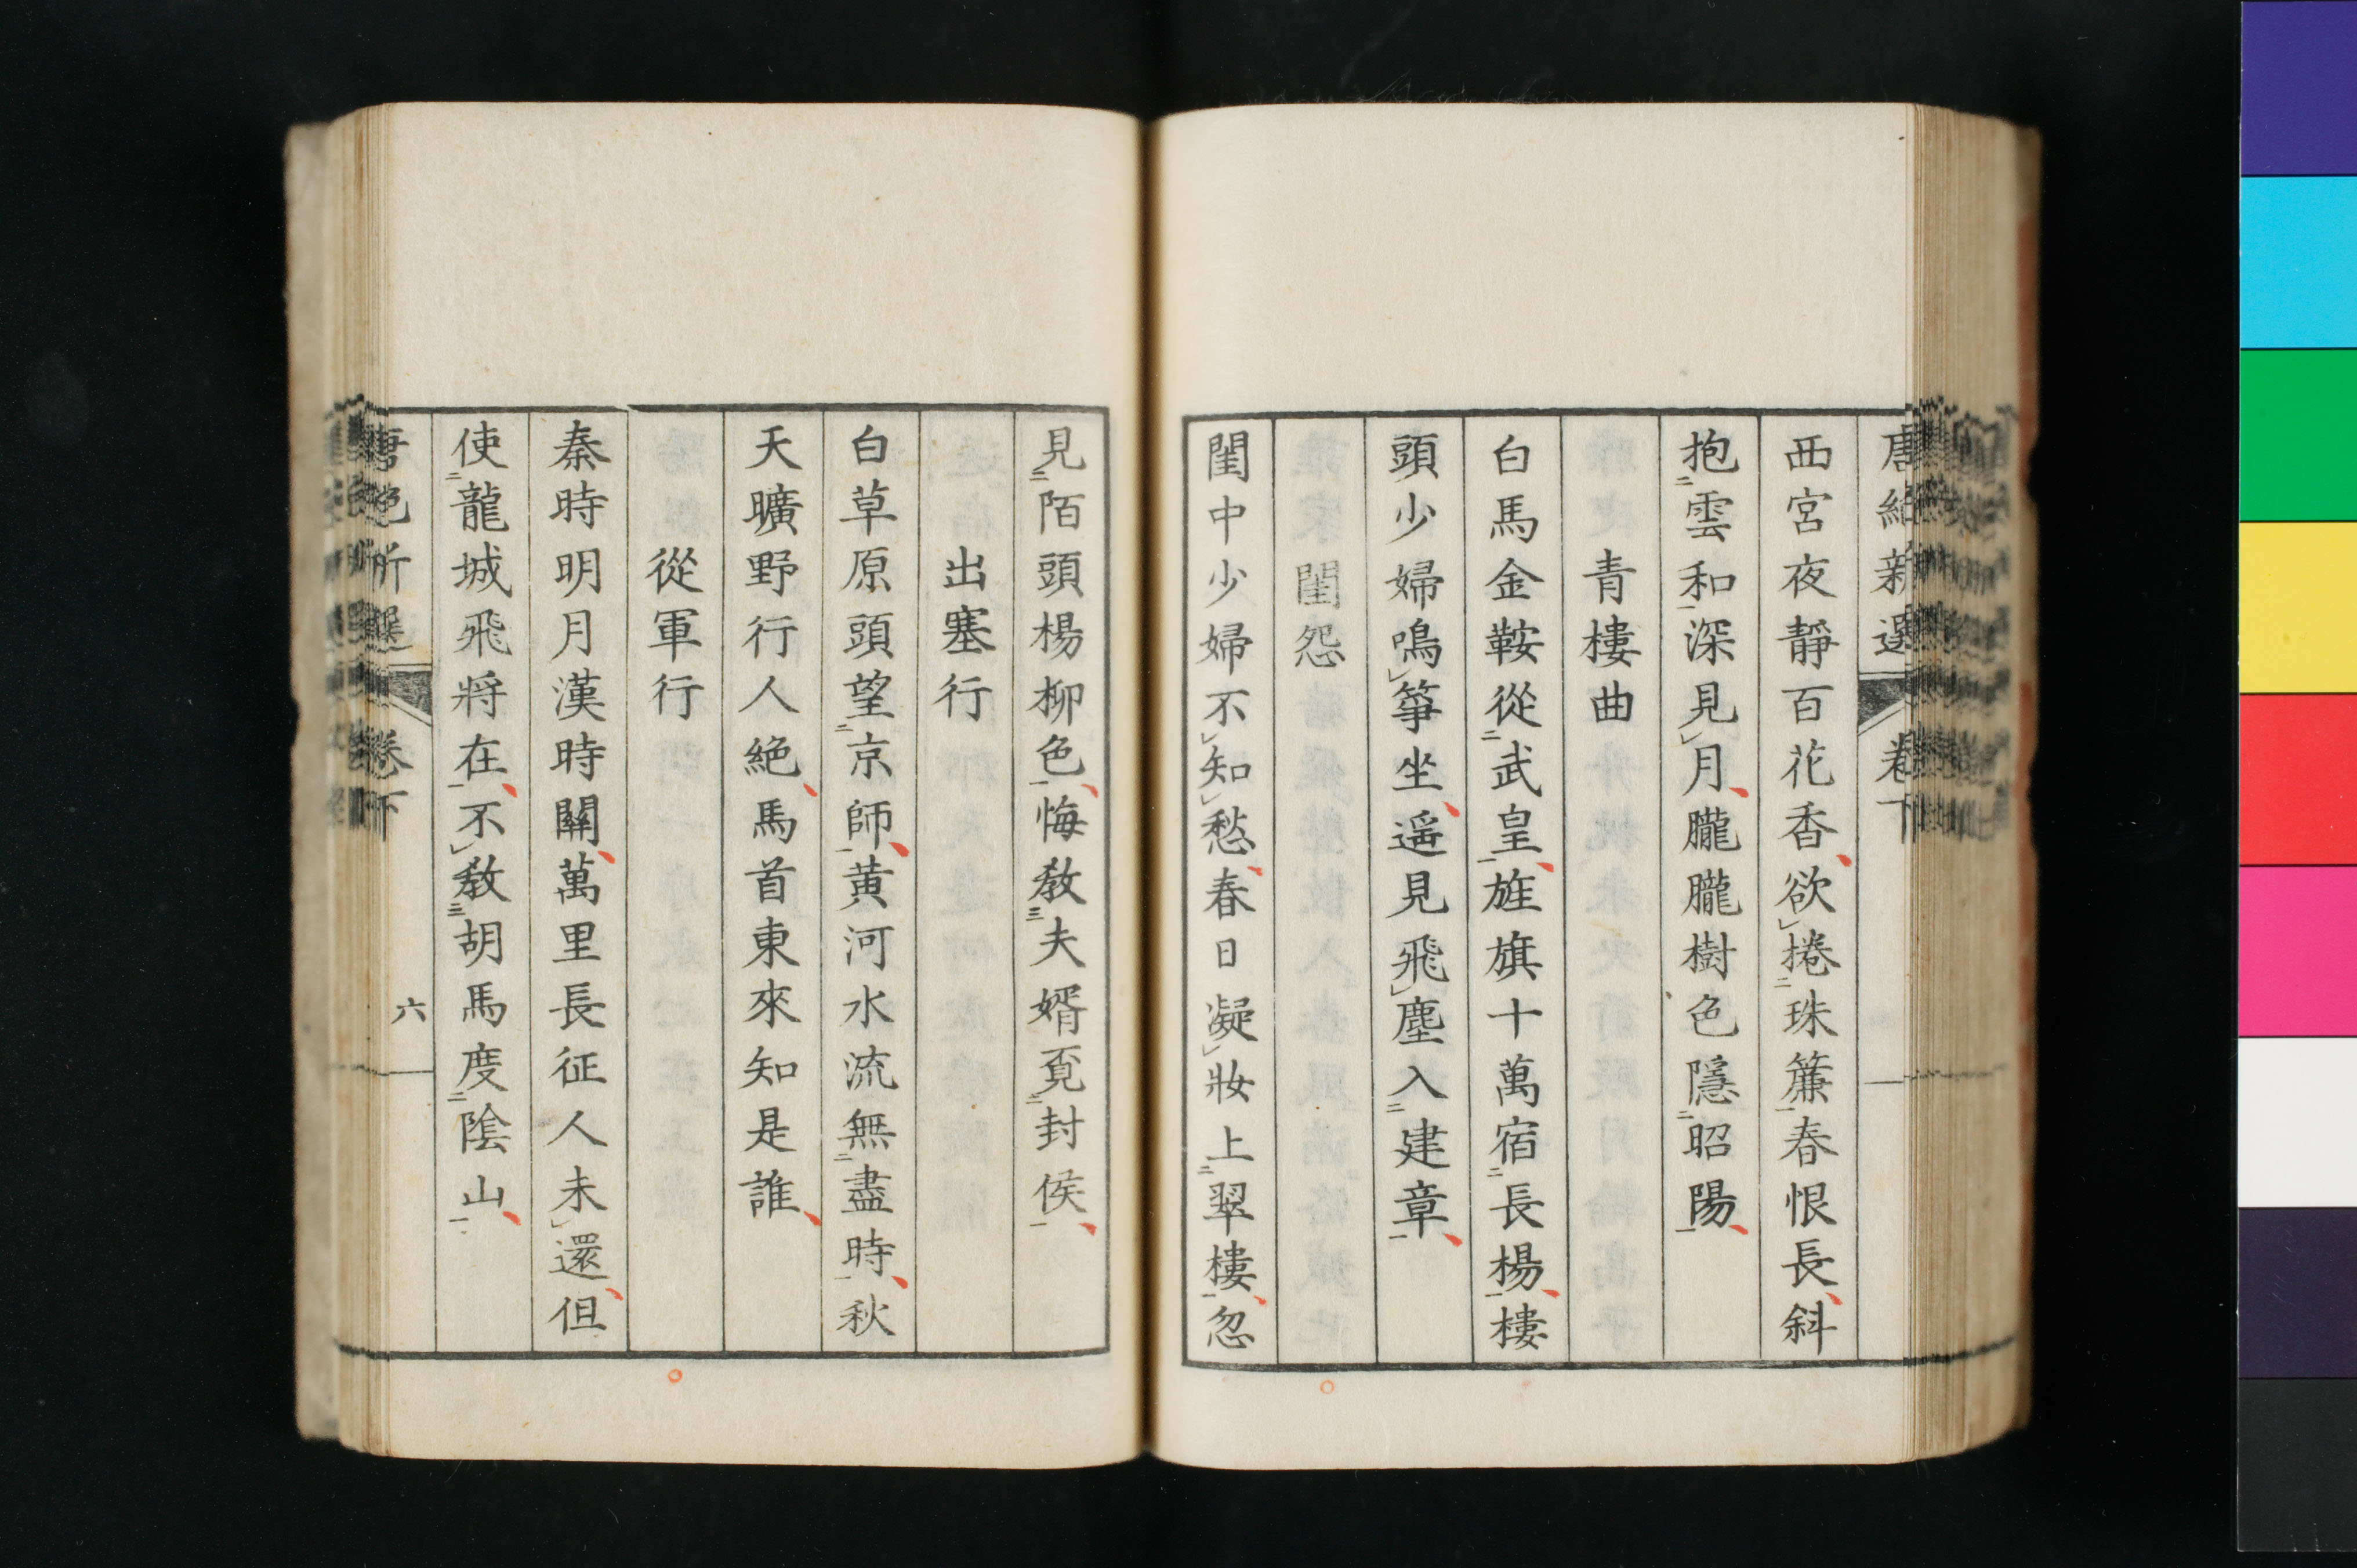 唐絶新選 卷下
西宮夜靜百花香欲捲珠簾春恨長斜
抱雲和深見月朧朧樹色隱昭陽
青樓曲
白馬金鞍從武皇旌旗十萬宿長楊樓
頭少婦鳴箏坐遥見飛塵入建章
閨怨
閨中少婦不知愁春日凝妝上翠樓忽
見陌頭楊柳色悔敎夫婿覓封侯
出塞行
白草原頭望京師黃河水流無盡時秋
天曠野行人絶馬首東來知是誰
從軍行
秦時明月漢時關萬里長征人未還但
使龍城飛將在不敎胡馬度陰山
唐絶新選 卷下 六